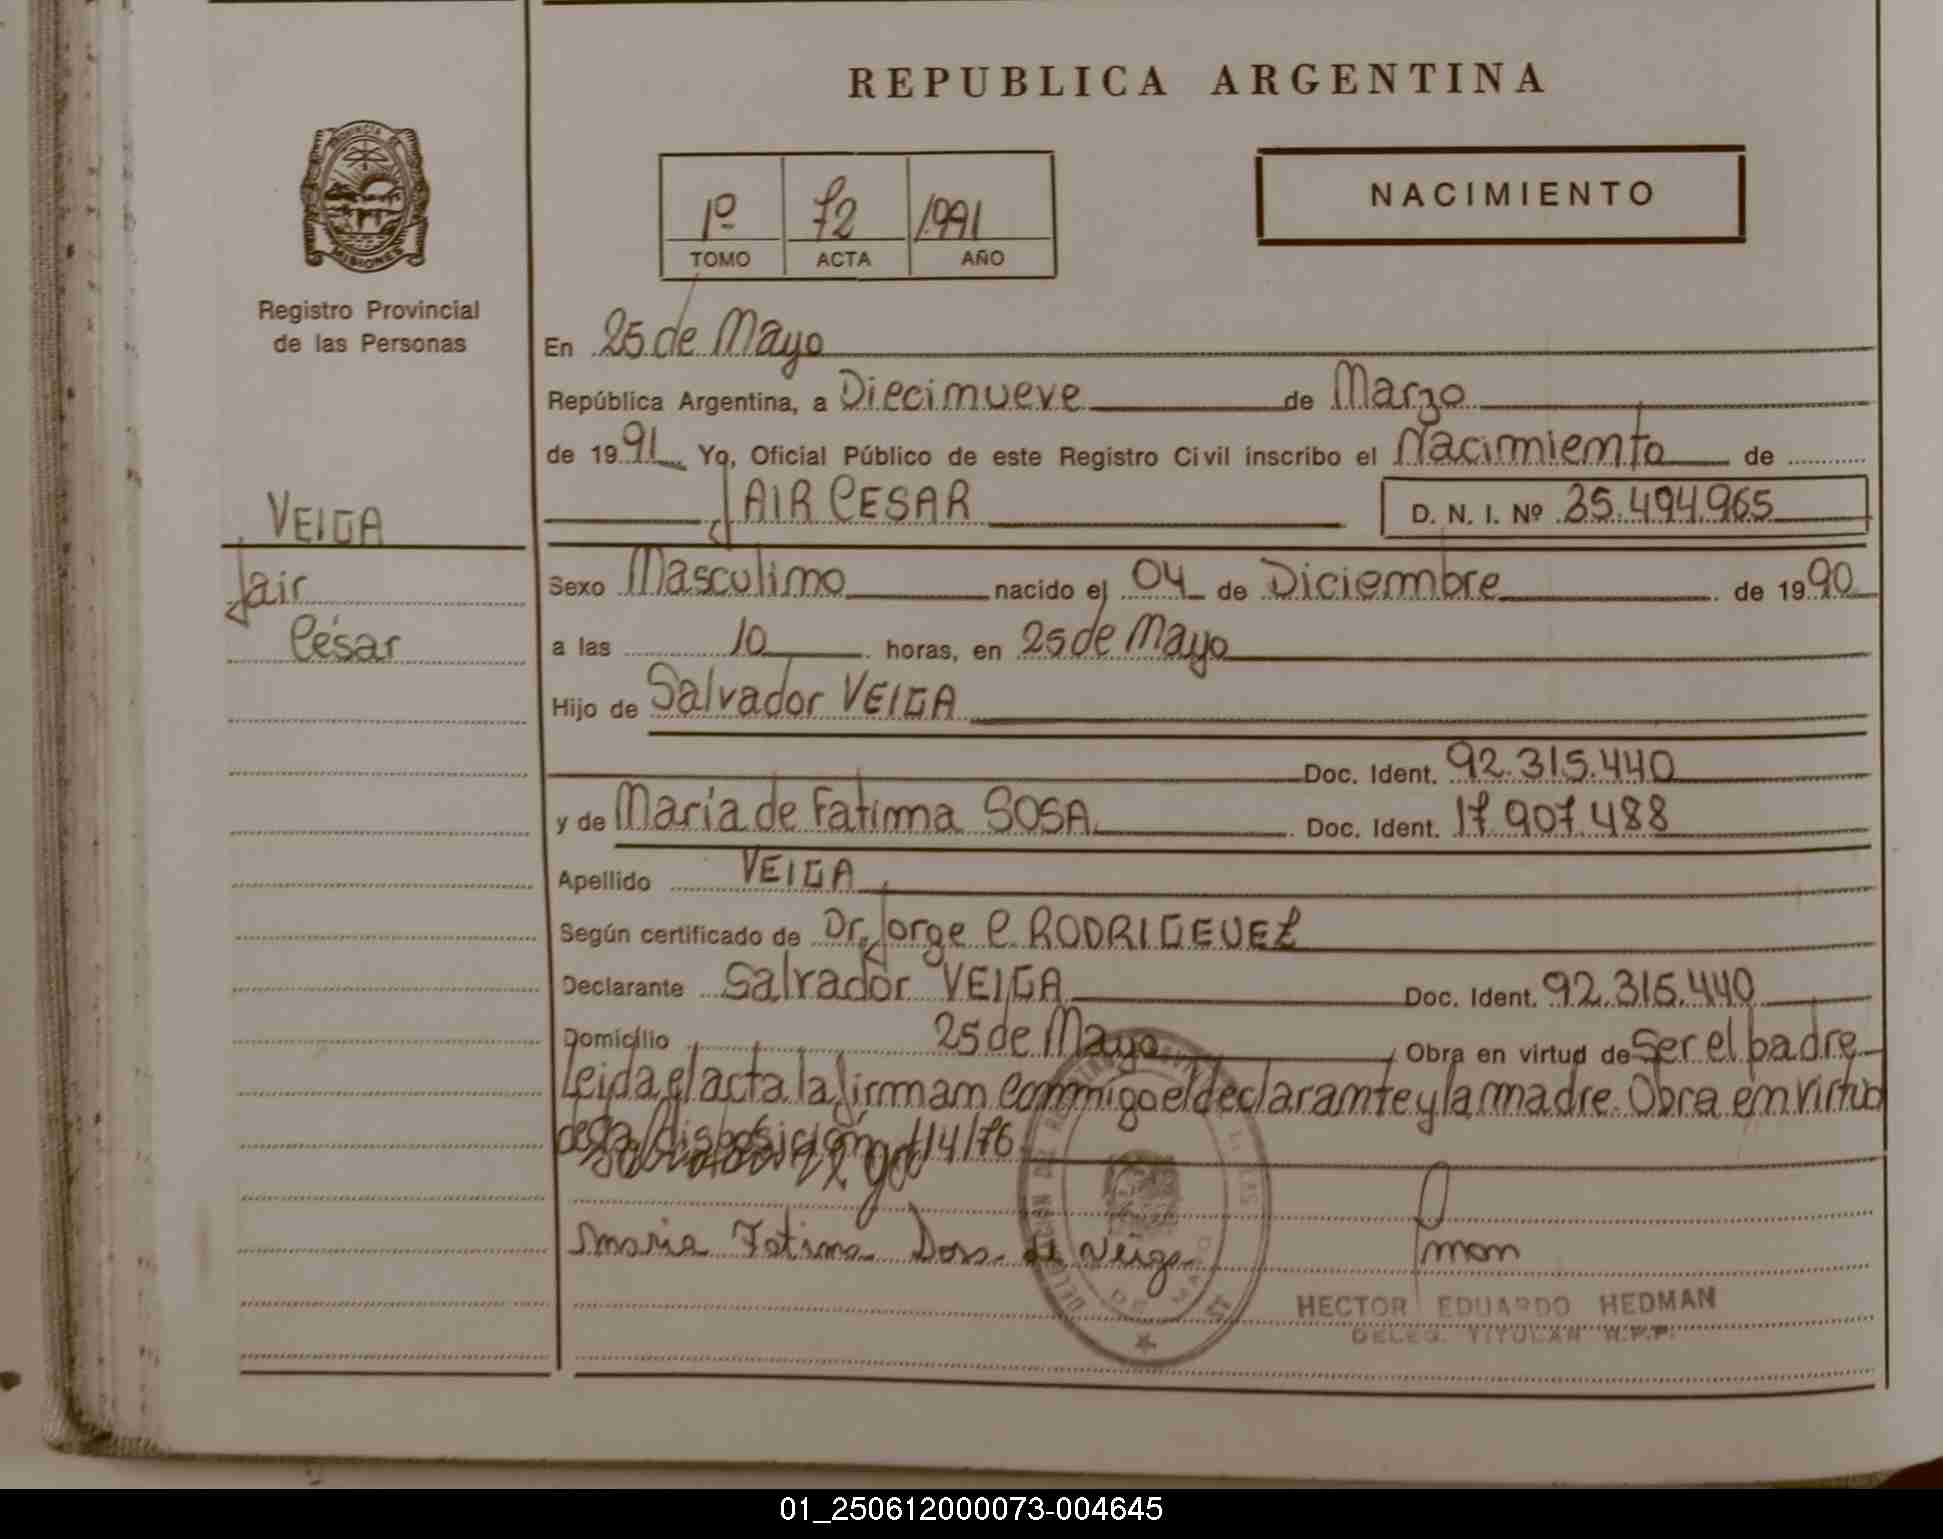 REPUBLICA ARGENTINA
NACIMIENTO
1º 72 1991
TOMO ACTA AÑO
PROVINCIA DE
MISIONES
Registro Provincial
de las Personas
En 25 de Mayo
República Argentina, a Diecinueve de Marzo
de 1991 Yo, Oficial Público de este Registro Civil inscribo el Nacimiento de
JAIR CESAR D. N. I. Nº 35.494.965
VEIGA
Jair
César
Sexo Masculino nacido el 04 de Diciembre de 1990
a las 10 horas, en 25 de Mayo
Hijo de Salvador VEIGA
Doc. Ident. 92.315.440
y de María de Fatima SOSA Doc. Ident. 17.907.488
Apellido VEIGA
Según certificado de Dr. Jorge C. RODRIGEUEZ
Declarante Salvador VEIGA Doc. Ident. 92.315.440
Domicilio 25 de Mayo Obra en virtud de Ser el padre
Leida el acta la firman conmigo el declarante y la madre. Obra en virtud
de la disposición 414/76
Maria Fatima Sosa de Veiga
HECTOR EDUARDO HEDMAN
DELEG. TITULAR R.P.P.
01_250612000073-004645